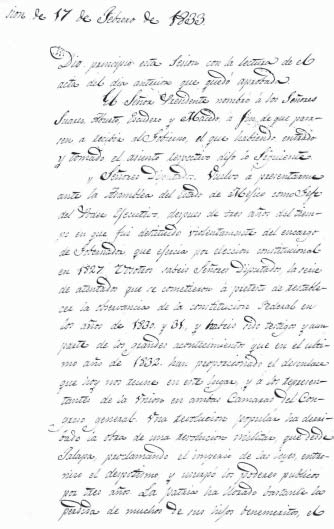 sion de 17 de Febrero de 1833
Dio principio esta Sesion con la lectura de el
acta del dia anterior que quedó aprobada.
El Señor Presidente nombró á los Señores
Suares, Escudero y Macedo, á fin de que pasa-
sen a recibir al Gobierno, el que habiendo entrado
y tomado el asiento respectivo dijo lo siguiente
Señores Diputados. Vuelvo á presentarme
ante la Asamblea del Estado de Mejico como Gefe
del Poder Ejecutivo, despues de tres años del tiem-
po en que fui destituido violentamente del encargo
de Gobernador que ejercia por eleccion constitucional
en 1827. Vosotros sabeis Señores Diputados, la serie
de atentados que se cometieron á pretesto de restable-
cer la observancia de la constitucion Federal en
los años de 1830 y 31, y habeis sido testigos y aun
parte de los grandes acontecimientos que en el ulti-
mo año de 1832 han proporcionado el desenlace
que hoy nos reune en este lugar, y á los represen-
tantes de la Union en ambas Camaras del Con-
greso general. Una revolucion popular ha derri-
bado la obra de una revolucion militar, que desde
Jalapa, proclamando el imperio de las leyes, entro-
nizó el despotismo y usurpó los poderes publicos
por tres años. La patria ha llorado bastante la
perdida de muchos de sus hijos benemeritos, el